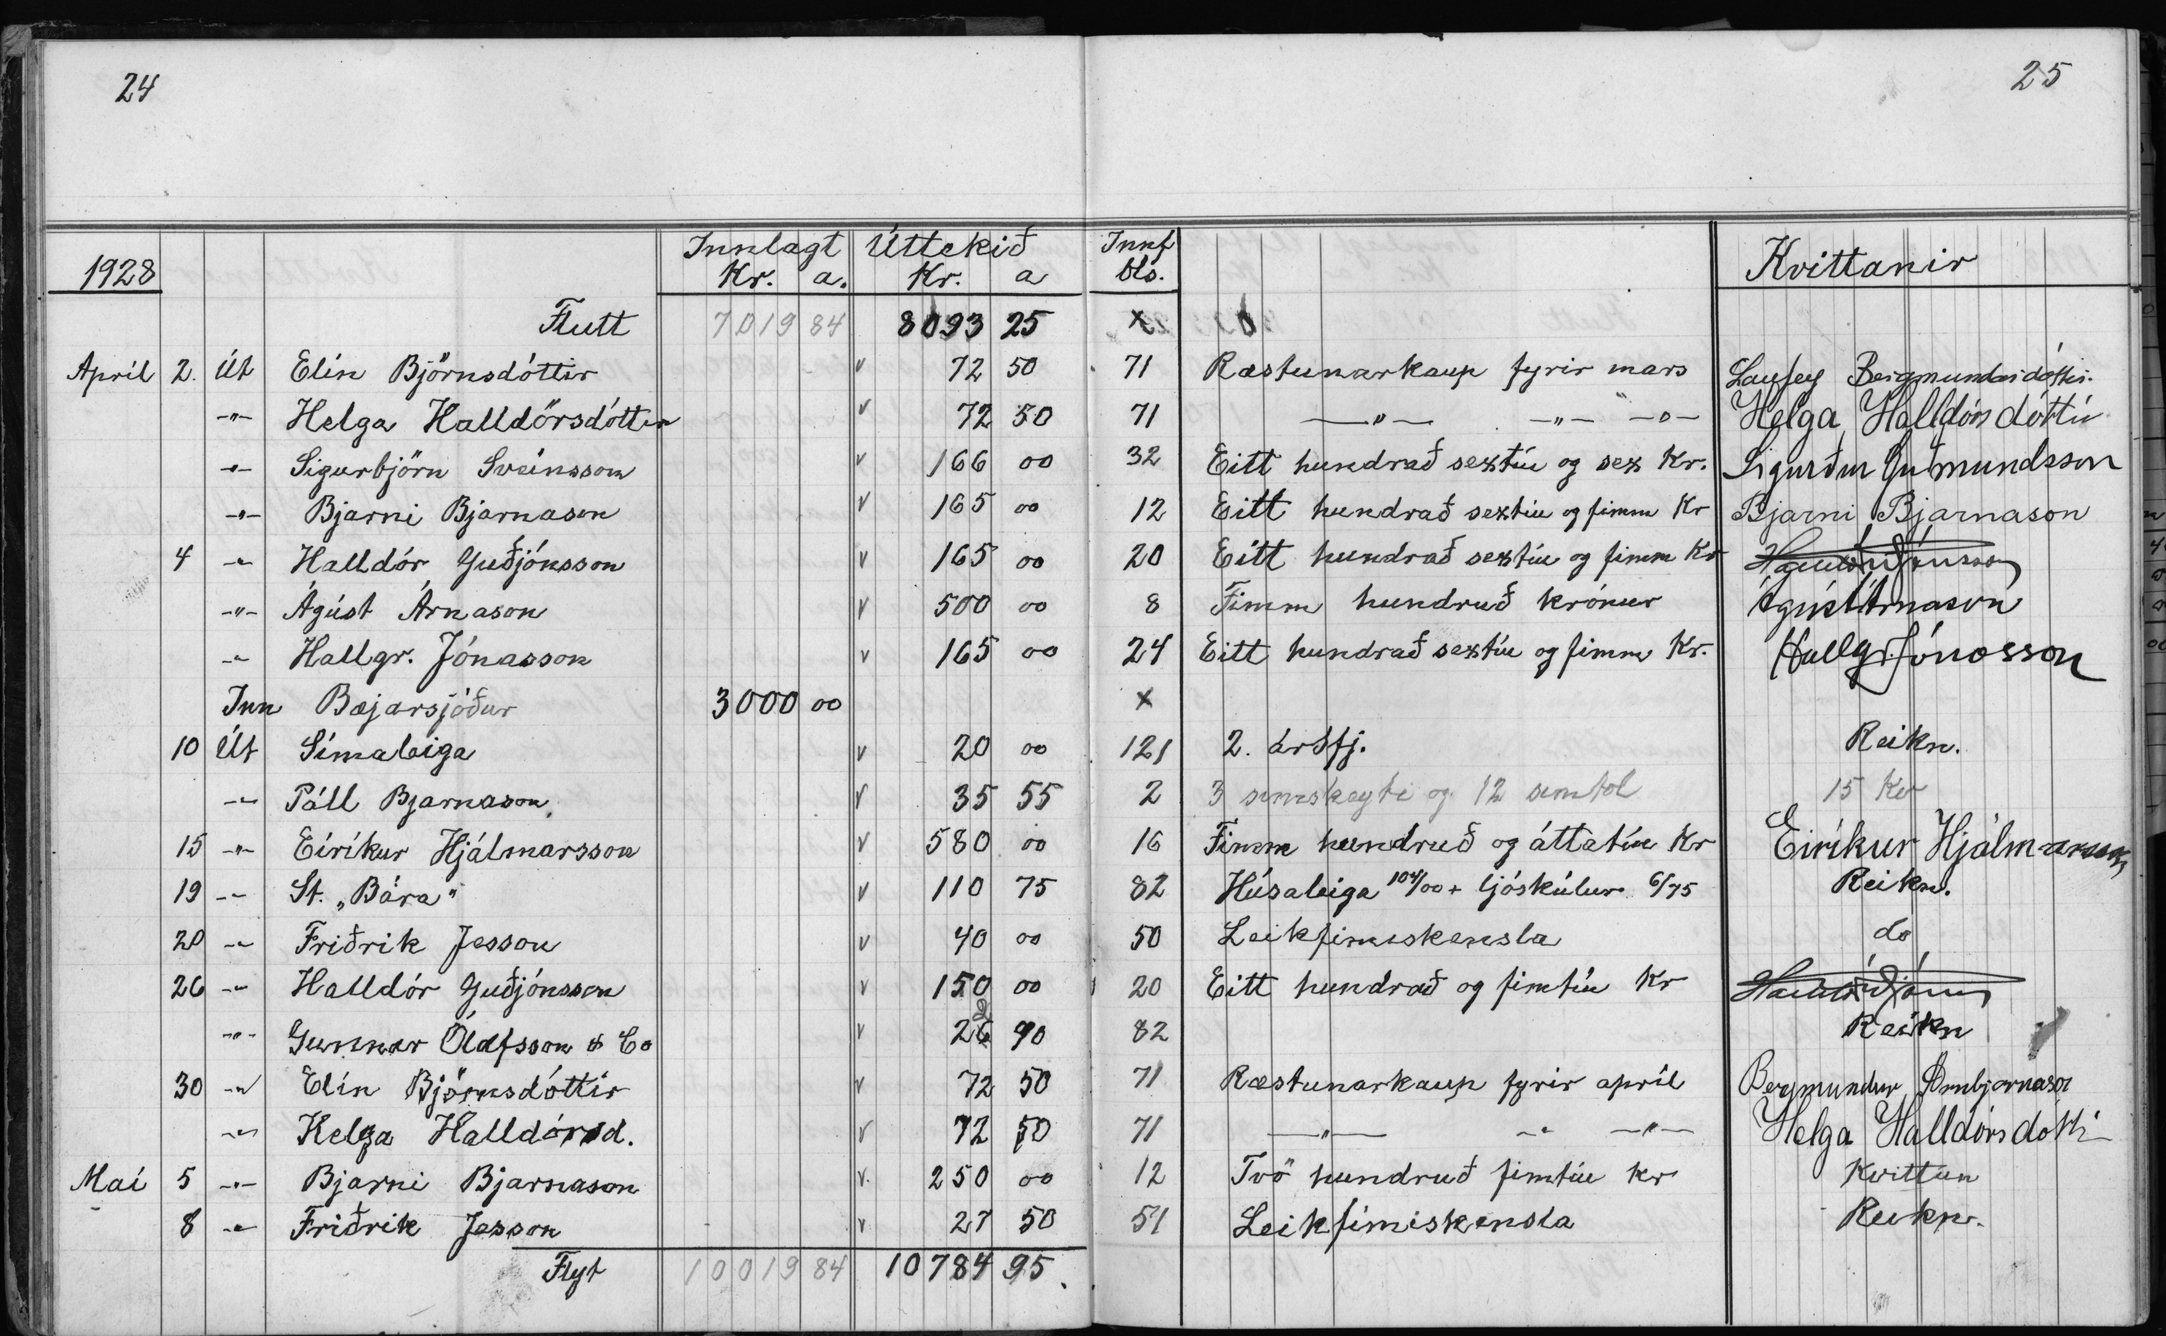 24 25
1928 Innlagt Úttekið Innf Kvittanir
Kr. a. Kr. a bls.
Flutt 7019 84 8093 25 x
Apríl 2. Út Elín Björnsdóttir v 72 50 71 Ræstunarkaup fyrir mars Laufey Bergmundsdóttir.
-"- Helga Halldórsdóttir v 72 50 71 -"- -"- -"- Helga Halldórsdóttir
-"- Sigurbjörn Sveinsson v 166 00 32 Eitt hundrað sextíu og sex Kr. Sigurður Guðmundsson
-"- Bjarni Bjarnason v 165 00 12 Eitt hundrað sextíu og fimm Kr Bjarni Bjarnason
4 -"- Halldór Guðjónsson v 165 00 20 Eitt hundrað sextíu og fimm Kr Halldór Guðjónsson
-"- Ágúst Árnason v 500 00 8 Fimm hundruð krónur Ágúst Árnason
-"- Hallgr. Jónasson v 165 00 24 Eitt hundrað sextíu og fimm Kr. Hallgr. Jónasson
Inn Bæjarsjóður 3000 00 x
10 Út Símaleiga v 20 00 121 2. ársfj. Reikn.
-"- Páll Bjarnason v 35 55 2 3 símskeyti og 12 símtöl 15 Kr
15 -"- Eiríkur Hjálmarsson v 580 00 16 Fimm hundruð og áttatíu Kr Eiríkur Hjálmarsson
19 -"- St. „Bára" v 110 75 82 Húsaleiga 104/00 + ljóskúlur 6/75 Reikn.
20 -"- Friðrik Jesson v 40 00 50 Leikfimiskensla do
26 -"- Halldór Guðjónsson v 150 00 20 Eitt hundrað og fimtíu Kr Halldór Guðjónss
-"- Gunnar Ólafsson & Co v 26 90 82 Reikn
30 -"- Elín Björnsdóttir v 72 50 71 Ræstunarkaup fyrir apríl Bergmundur Arnbjarnason
-"- Helga Halldórsd. v 72 50 71 -"- -"- -"- Helga Halldórsdótti
Maí 5 -"- Bjarni Bjarnason v. 250 00 12 Tvö hundruð fimtíu kr Kvittun
8 -"- Friðrik Jesson v 27 50 51 Leikfimiskensla Reikn.
Flyt 10019 84 10784 95.